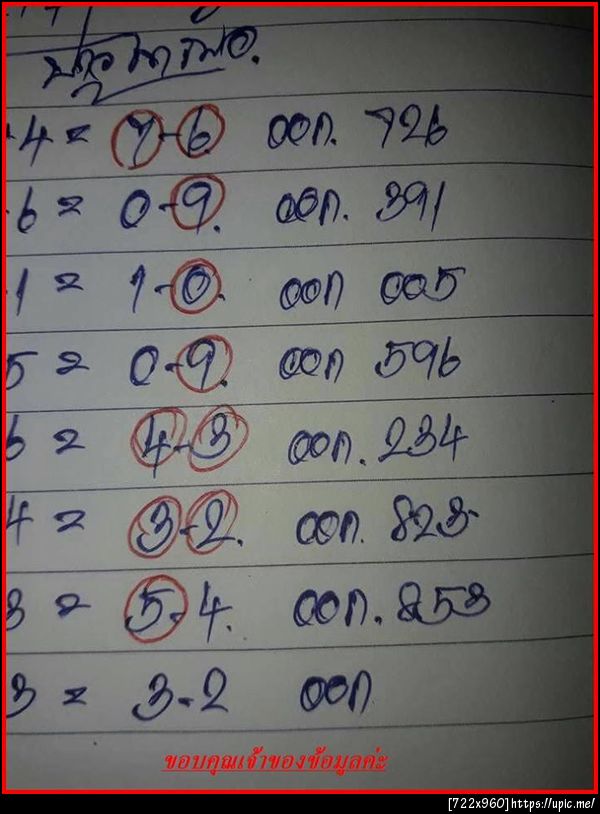 4 = 7-6 ออก. 726
6 = 0-9. ออก. 391
1 = 1-0. ออก 005
5 = 0-9. ออก 596
6 = 4-3 ออก. 234
4 = 3-2. ออก. 823
3 = 5-4. ออก. 853
3 = 3-2 ออก
ขอบคุณเจ้าของข้อมูลค่ะ
[722x960]https://upic.me/